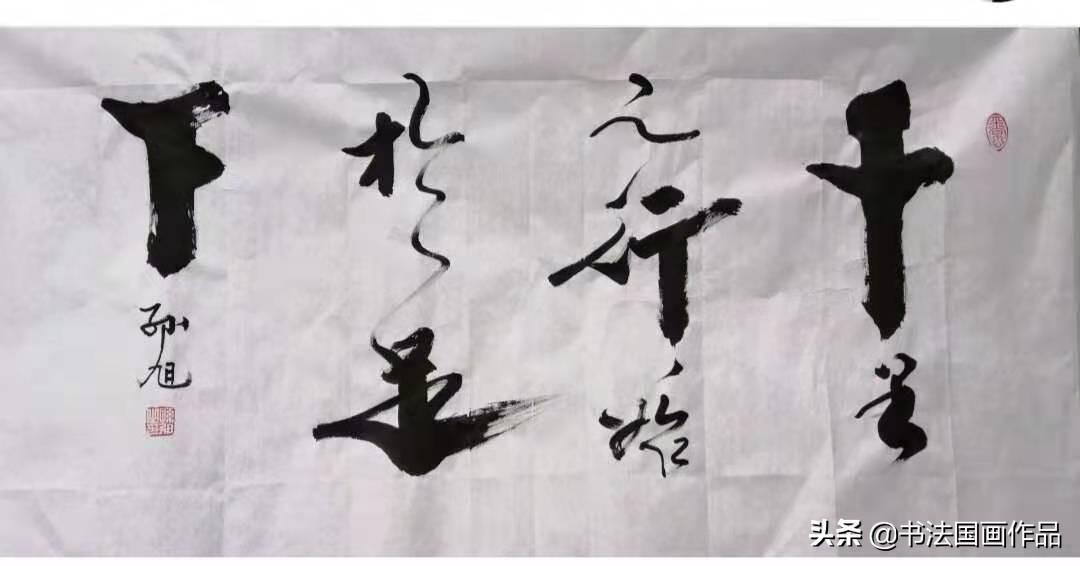 千里
之行始
於足
下
孙旭
头条 @书法国画作品